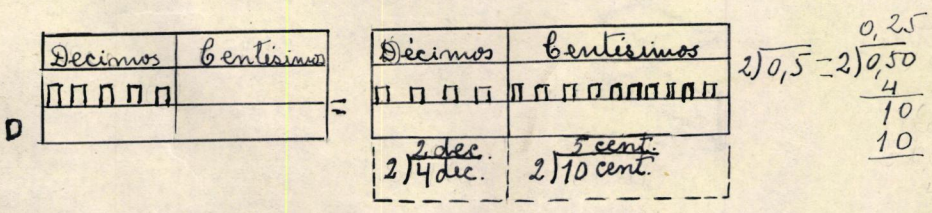 Decimos Centésimos
D
=
Décimos Centésimos
2 dec.
2)4 dec.
5 cent.
2)10 cent.
2)0,5 =
0,25
2)0,50
4
10
10